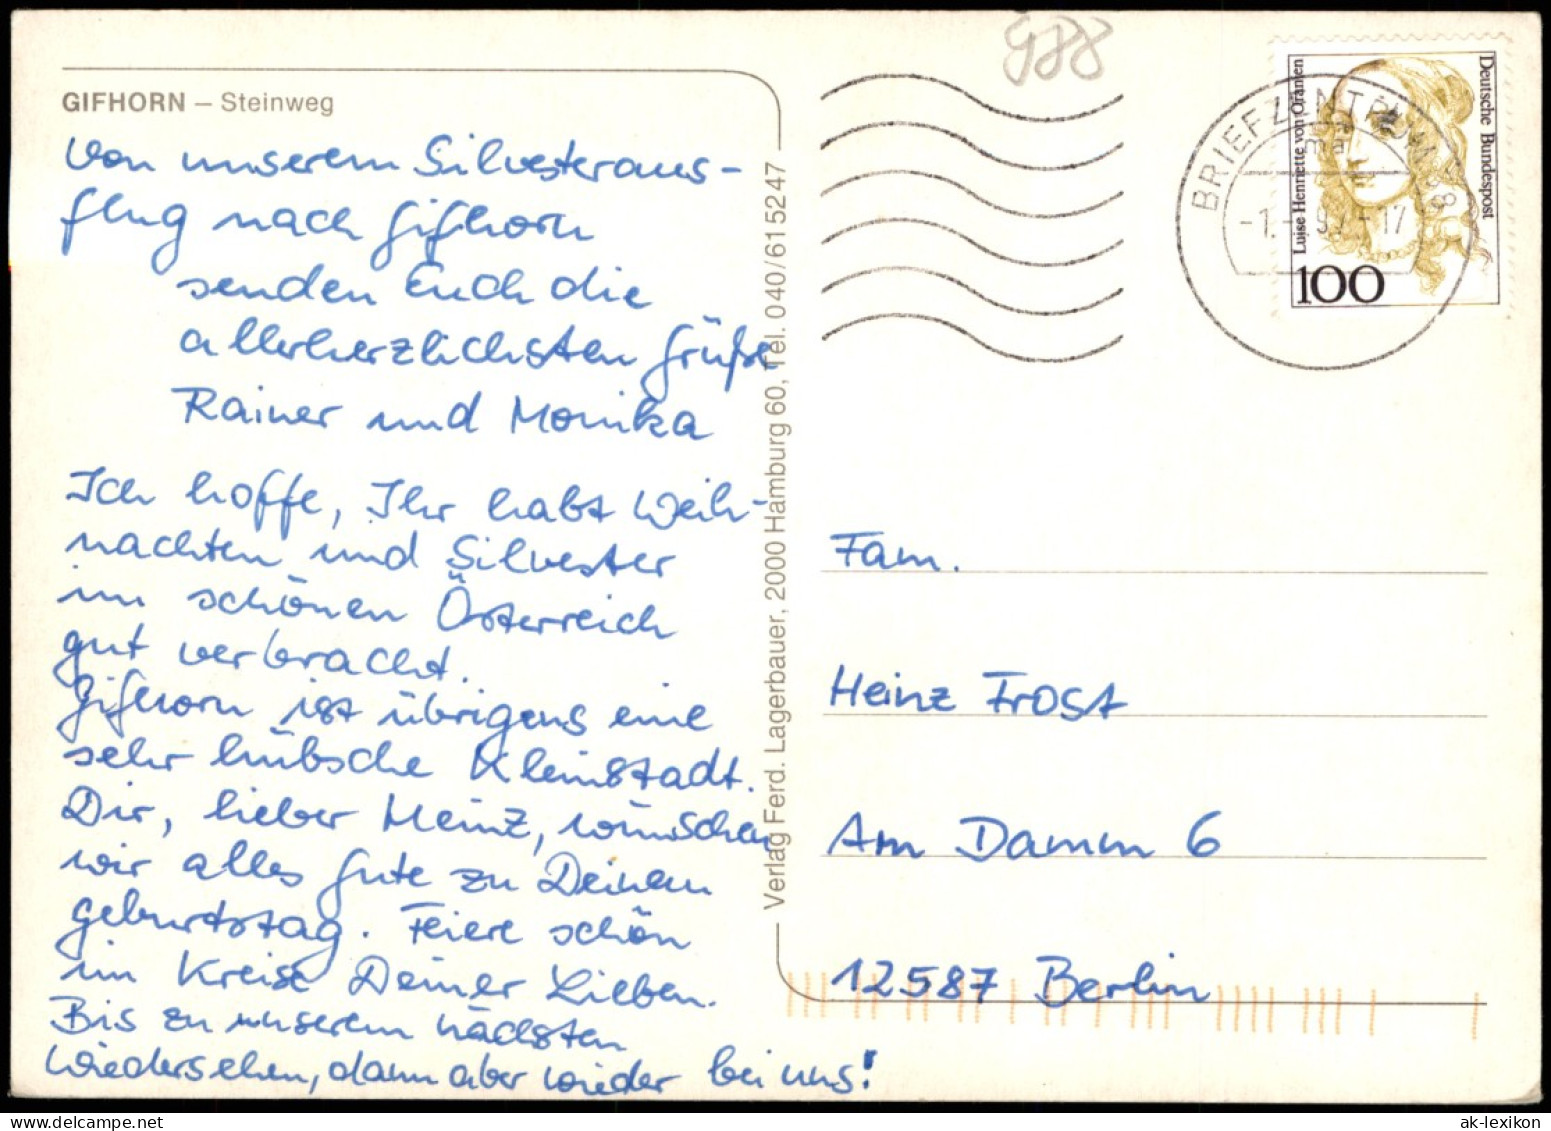 988
GIFHORN – Steinweg
Von unserem Silvesteraus-
flug nach Gifhorn
senden Euch die
allerherzlichsten Grüße
Rainer und Monika
Ich hoffe, Ihr habt Weih-
nachten und Silvester
im schönen Österreich
gut verbracht.
Gifhorn ist übrigens eine
sehr hübsche Kleinstadt.
Dir, lieber Heinz, wünschen
wir alles Gute zu Deinem
Geburtstag. Feiere schön
im Kreise Deiner Lieben.
Bis zu unserem nächsten
Wiedersehen, dann aber wieder bei uns!
Verlag Ferd. Lagerbauer, 2000 Hamburg 60, Tel. 040/615247
BRIEFZENTRUM 38
Deutsche Bundespost
Luise Henriette von Oranien
100
Fam.
Heinz Frost
Am Damm 6
12587 Berlin
ak-lexikon